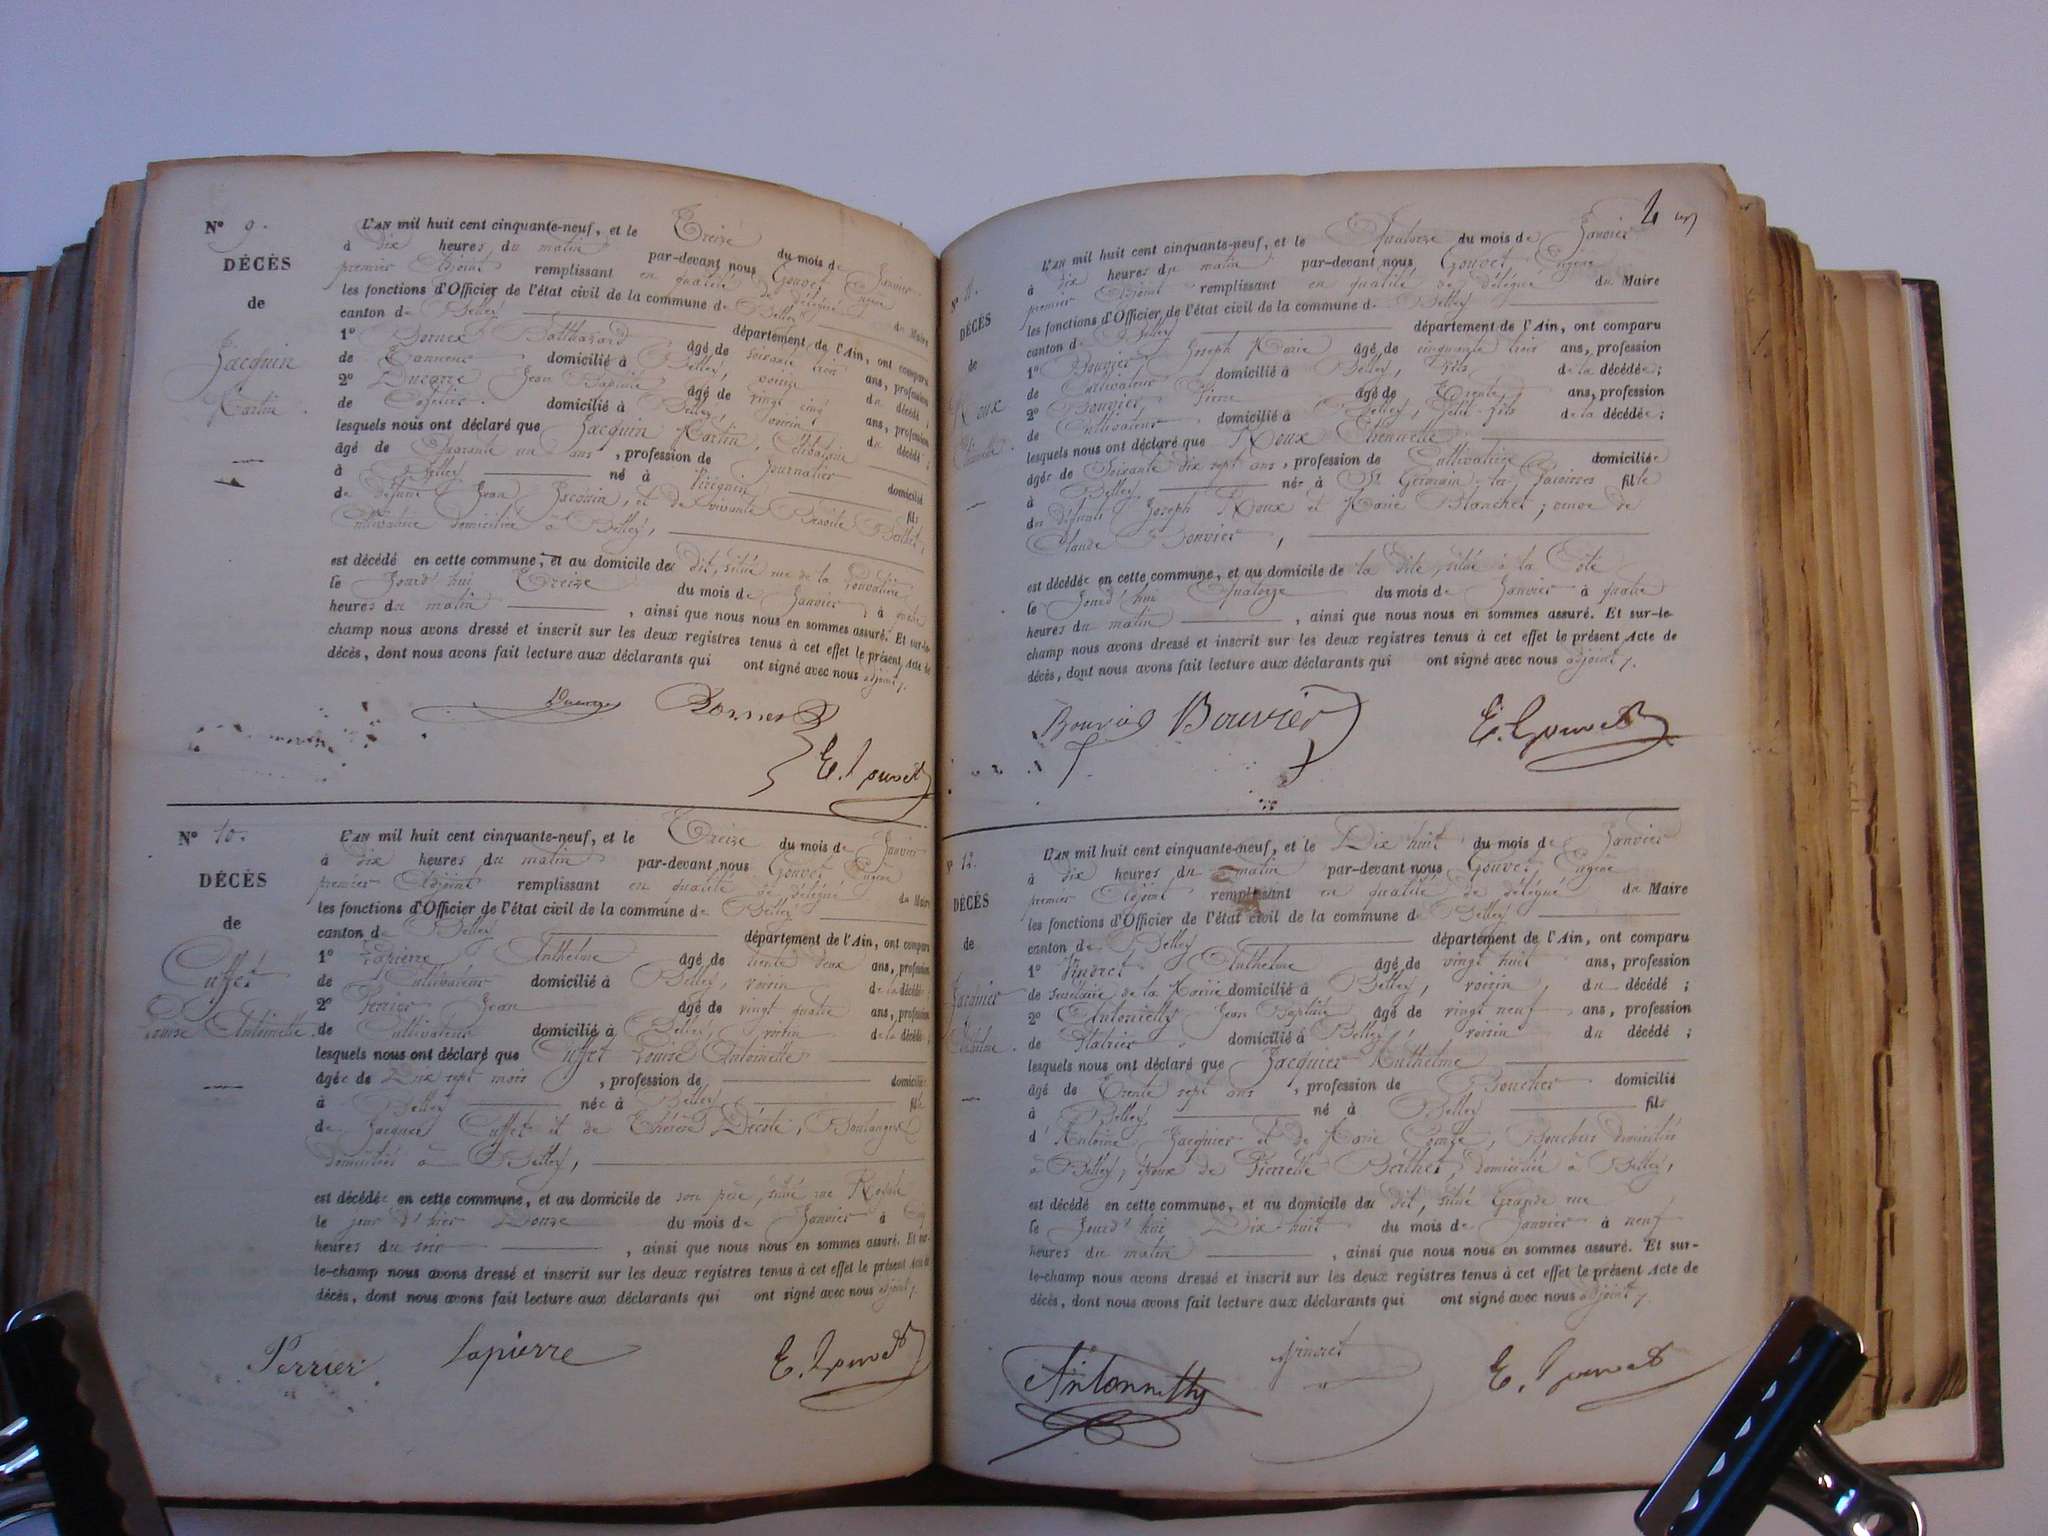 N° 9.
DÉCÈS
de
Jacquin
Martin.
L'AN mil huit cent cinquante-neuf, et le Treize du mois de Janvier
à dix heures du matin par-devant nous Gouvet Eugène
premier Adjoint remplissant en qualité de délégué du Maire
les fonctions d'Officier de l'état civil de la commune de Belley
canton de Belley département de l'Ain, ont comparu
1° Bornex Balthazard âgé de soixante trois ans, profession
de Tanneur domicilié à Belley, voisin du décédé;
2° Ducarre Jean Baptiste âgé de vingt cinq ans, profession
de domicilié à Belley, voisin du décédé;
lesquels nous ont déclaré que Jacquin Martin, Célibataire
âgé de Quarante un ans, profession de Journalier domicilié
à Belley né à fils
de défunt Jean Jacquin, et de vivante Benoite
Cultivatrice domiciliée à Belley,
est décédé en cette commune, et au domicile du dit, situé rue de la
le Jourd'hui Treize du mois de Janvier, à
heures du matin, ainsi que nous nous en sommes assuré. Et sur-le-
champ nous avons dressé et inscrit sur les deux registres tenus à cet effet le présent Acte de
décès, dont nous avons fait lecture aux déclarants qui ont signé avec nous adjoint /.
Bornex
E. Gouvet
N° 10.
DÉCÈS
de
Cuffet
Louise Antoinette
L'AN mil huit cent cinquante-neuf, et le Treize du mois de Janvier
à dix heures du matin par-devant nous Gouvet Eugène
premier Adjoint remplissant en qualité de délégué du Maire
les fonctions d'Officier de l'état civil de la commune de Belley
canton de Belley département de l'Ain, ont comparu
1° Lapierre Anthelme âgé de trente deux ans, profession
de Cultivateur domicilié à Belley, voisin de la décédée;
2° Perrier Jean âgé de vingt quatre ans, profession
de Cultivateur domicilié à Belley, voisin de la décédée;
lesquels nous ont déclaré que Cuffet Louise Antoinette
âgée de Dix sept mois, profession de domiciliée
à Belley née à Belley fille
de Jacques Cuffet et de Thérèse Décote, Boulangers
domiciliés à Belley,
est décédée en cette commune, et au domicile de son père, situé rue Royale
le jour d'hier Douze du mois de Janvier à
heures du soir, ainsi que nous nous en sommes assuré. Et sur-
le-champ nous avons dressé et inscrit sur les deux registres tenus à cet effet le présent Acte de
décès, dont nous avons fait lecture aux déclarants qui ont signé avec nous adjoint /.
Perrier Lapierre E. Gouvet
4
N° 11.
DÉCÈS
de
Roux
L'AN mil huit cent cinquante-neuf, et le Quatorze du mois de Janvier
à dix heures du matin par-devant nous Gouvet Eugène
premier Adjoint remplissant en qualité de délégué du Maire
les fonctions d'Officier de l'état civil de la commune de Belley
canton de Belley département de l'Ain, ont comparu
1° Bouvier Joseph Marie âgé de cinquante trois ans, profession
de Cultivateur domicilié à Belley, fils de la décédée;
2° Bouvier Pierre âgé de Trente, ans, profession
de Cultivateur domicilié à Belley, petit-fils de la décédée;
lesquels nous ont déclaré que Roux Etiennette
âgée de Soixante dix sept ans, profession de Cultivatrice domiciliée
à Belley née à St Germain les Paroisses fille
des défunts Joseph Roux et Marie Blanchet; veuve de
Claude Bouvier,
est décédée en cette commune, et au domicile de la dite, situé à la Côte
le Jourd'hui Quatorze du mois de Janvier à quatre
heures du matin, ainsi que nous nous en sommes assuré. Et sur-le-
champ nous avons dressé et inscrit sur les deux registres tenus à cet effet le présent Acte de
décès, dont nous avons fait lecture aux déclarants qui ont signé avec nous adjoint /.
Bouvier Bouvier E. Gouvet
12.
DÉCÈS
de
Jacquier
Anthelme.
L'AN mil huit cent cinquante-neuf, et le Dix huit du mois de Janvier
à dix heures du matin par-devant nous Gouvet Eugène
premier Adjoint remplissant en qualité de délégué du Maire
les fonctions d'Officier de l'état civil de la commune de Belley
canton de Belley département de l'Ain, ont comparu
1° Anthelme âgé de vingt huit ans, profession
de secrétaire de la Mairie domicilié à Belley, voisin, du décédé;
2° Antonielly Jean Baptiste âgé de vingt neuf ans, profession
de Plâtrier domicilié à Belley voisin du décédé;
lesquels nous ont déclaré que Jacquier Anthelme
âgé de Trente sept ans, profession de Boucher domicilié
à Belley né à Belley fils
d'Antoine Jacquier et de Marie Bouchers domiciliés
à Belley; époux de Pierrette Berthet, domiciliée à Belley,
est décédé en cette commune, et au domicile du dit, situé Grande rue
le Jourd'hui Dix-huit du mois de Janvier à neuf
heures du matin, ainsi que nous nous en sommes assuré. Et sur-
le-champ nous avons dressé et inscrit sur les deux registres tenus à cet effet le présent Acte de
décès, dont nous avons fait lecture aux déclarants qui ont signé avec nous adjoint /.
E. Gouvet